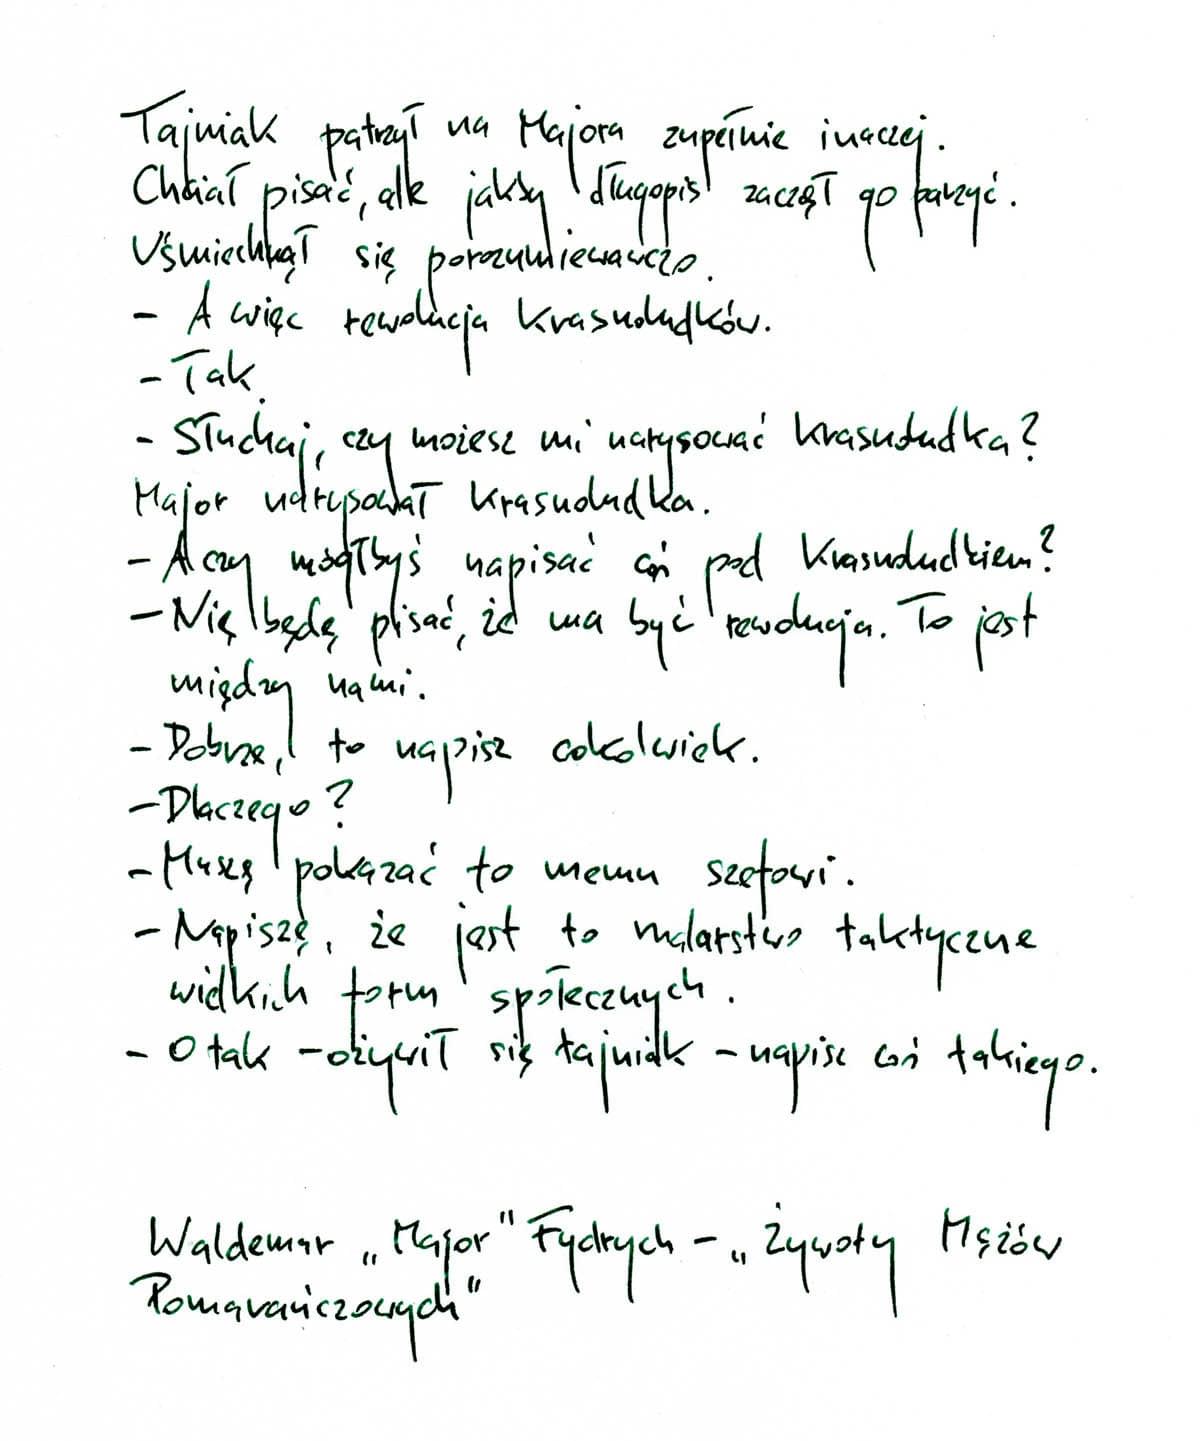 Tajniak patrzył na Majora zupełnie inaczej.
Chciał pisać, ale jakby długopis zaczął go parzyć.
Uśmiechnął się porozumiewawczo.
- A więc rewolucja Krasnoludków.
- Tak.
- Słuchaj, czy możesz mi narysować krasnoludka?
Major narysował krasnoludka.
- A czy mógłbyś napisać coś pod Krasnoludkiem?
- Nie będę pisać, że ma być rewolucja. To jest
między nami.
- Dobrze, to napisz cokolwiek.
- Dlaczego?
- Muszę pokazać to memu szefowi.
- Napiszę, że jest to malarstwo taktyczne
wielkich form społecznych.
- O tak - ożywił się tajniak - napisz coś takiego.
Waldemar „Major" Fydrych - „Żywoty Mężów
Pomarańczowych"